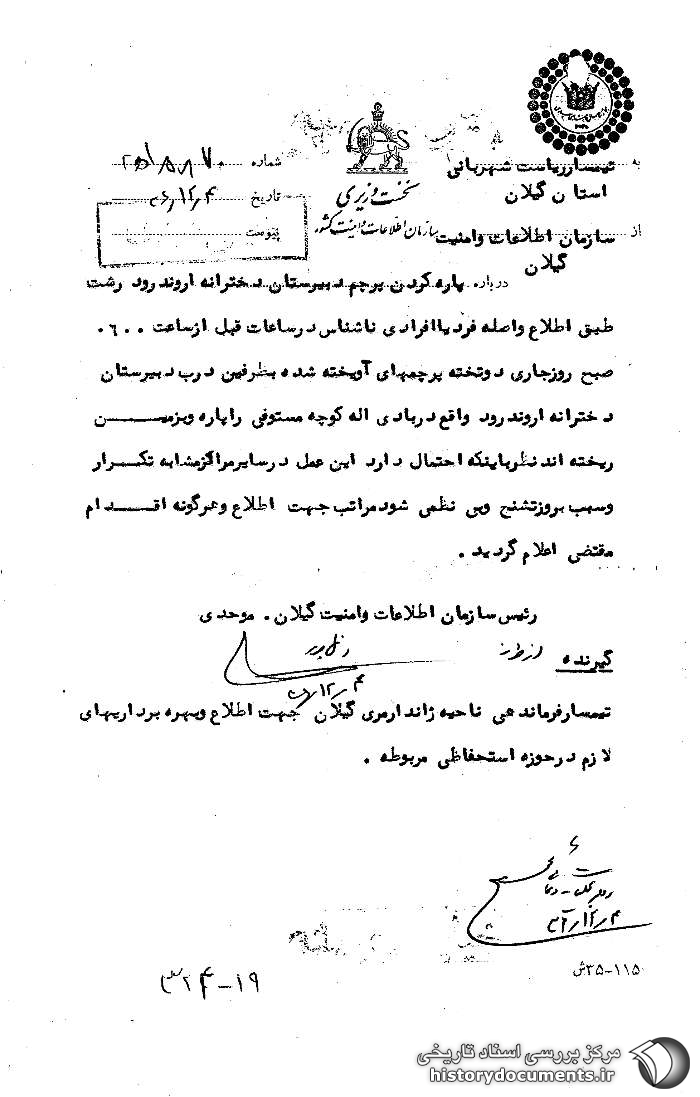 به تیمسار ریاست شهربانی
استان گیلان
از سازمان اطلاعات وامنیت
گیلان
نخست وزیری
سازمان اطلاعات و امنیت کشور
شماره
تاریخ ۳۶/۱۲/۴
پیوست
درباره پاره کردن پرچم دبیرستان دخترانه اروند رود رشت
طبق اطلاع واصله فرد یا افرادی ناشناس در ساعات قبل از ساعت ۰۶۰۰
صبح روز جاری دو تخته پرچمهای آویخته شده بطرفین درب دبیرستان
دخترانه اروند رود واقع در بادی اله کوچه مستوفی را پاره و بزمیـــن
ریخته اند نظر باینکه احتمال دارد این عمل در سایر مراکز مشابه تکــرار
وسبب بروز تشنج وبی نظمی شود مراتب جهت اطلاع وهرگونه اقــدام
مقتضی اعلام گردید .
رئیس سازمان اطلاعات وامنیت گیلان . موحدی
از طرف
۳۶/۱۲/۴
گیرنده
تیمسار فرماندهی ناحیه ژاندارمری گیلان جهت اطلاع وبهره برداریهای
لازم در حوزه استحفاظی مربوطه .
۳۵-۱۱۵ش
مرکز بررسی اسناد تاریخی
historydocuments.ir